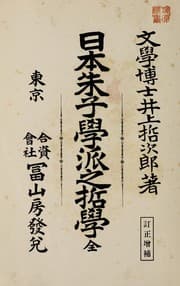 文學博士井上哲次郎著
訂正增補
日本朱子學派之哲學 全
東京
合資會社 冨山房發兌